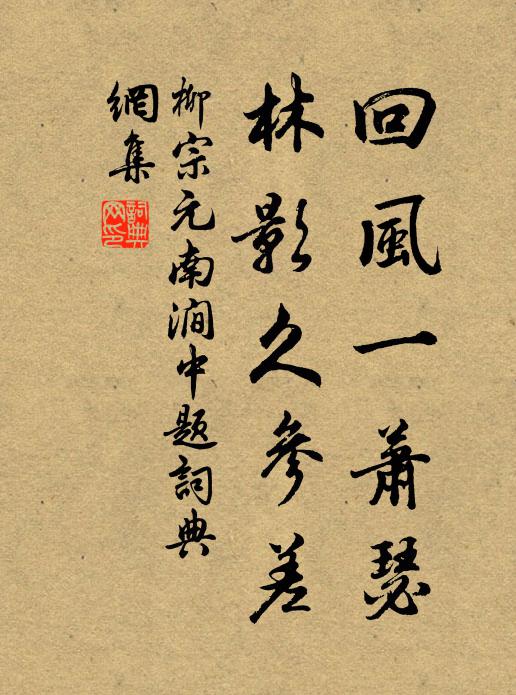 回風一蕭瑟
林影久參差
柳宗元南澗中题詞典
網集
詞典
网印